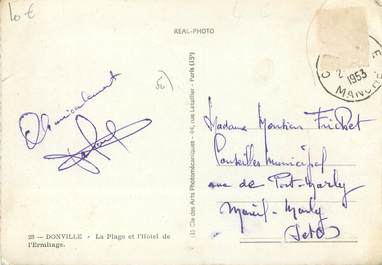 10 €
REAL-PHOTO
2
1953
MANCHE
50
Amicalement
(1) Cie des Arts Photomécaniques - 44, rue Letellier - Paris (15e)
Madame
Conseiller Municipal
rue de Port-Marly
Mareil-Marly
(S et O)
23 — DONVILLE - La Plage et l'Hôtel de
l'Ermitage.